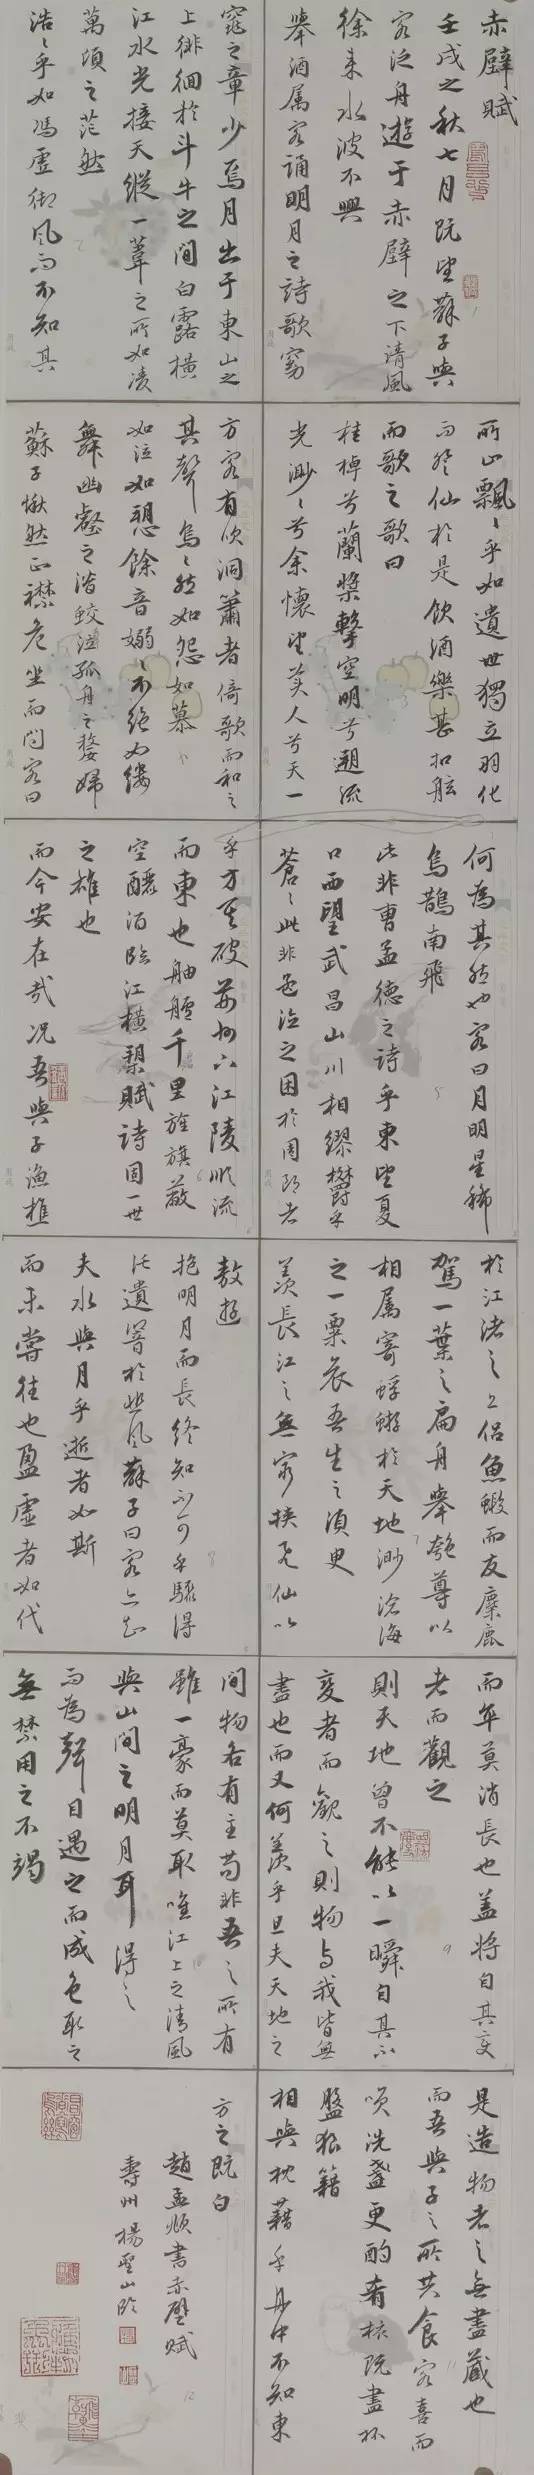 赤壁賦
壬戌之秋七月既望蘇子與
客泛舟遊于赤壁之下清風
徐來水波不興
舉酒属客誦明月之詩歌窈
窕之章少焉月出于東山之
上徘徊於斗牛之間白露橫
江水光接天縱一葦之所如凌
萬頃之茫然
浩々乎如馮虛御風而不知其
所止飄々乎如遺世獨立羽化
而登仙於是飲酒樂甚扣舷
而歌之歌曰
桂棹兮蘭槳擊空明兮遡流
光渺々兮余懷望美人兮天一
方客有吹洞簫者倚歌而和之
其聲烏々然如怨如慕
如泣如愬餘音嫋々不絕如縷
舞幽壑之潛蛟泣孤舟之嫠婦
蘇子愀然正襟危坐而問客曰
何為其然也客曰月明星稀
烏鵲南飛
此非曹孟德之詩乎東望夏
口西望武昌山川相繆欝乎
蒼々此非孟德之困於周郎者
乎方其破荊州下江陵順流
而東也舳艫千里旌旗蔽
空釃酒臨江橫槊賦詩固一世
之雄也
而今安在哉況吾與子漁樵
於江渚之上侶魚蝦而友麋鹿
駕一葉之扁舟舉匏尊以
相属寄蜉蝣於天地渺滄海
之一粟哀吾生之須臾
羨長江之無窮挾飛仙以
敖遊
抱明月而長終知不可乎驟得
託遺響於悲風蘇子曰客亦知
夫水與月乎逝者如斯
而未嘗往也盈虛者如代
而卒莫消長也蓋將自其變
者而觀之
則天地曾不能以一瞬自其不
變者而觀之則物與我皆無
盡也而又何羨乎且夫天地之
間物各有主苟非吾之所有
雖一豪而莫取唯江上之清風
與山間之明月耳得之
而為聲目遇之而成色取之
無禁用之不竭
是造物者之無盡藏也
而吾與子之所共食客喜而
笑洗盞更酌肴核既盡杯
盤狼籍
相與枕藉乎舟中不知東
方之既白
趙孟頫書赤壁賦
壽州楊聖山臨